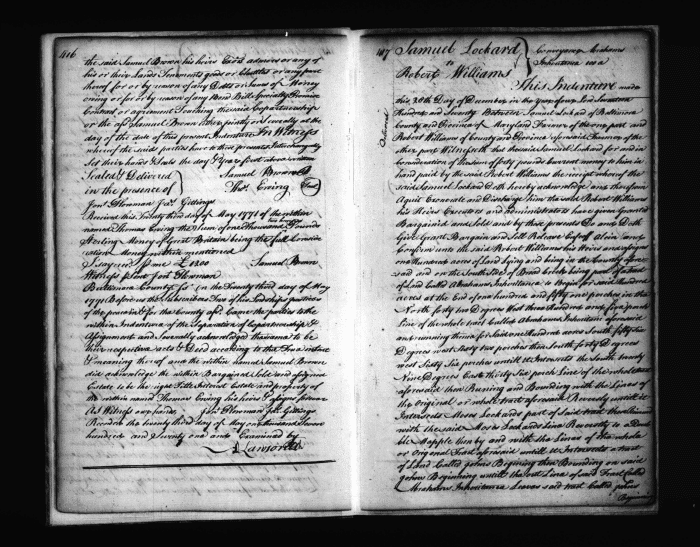 416
the said Samuel Brown his heirs Exors admors or any of
his or their Lands Tenements goods or Chattles or any part
thereof for or by reason of any Debts or Sums of Money
owing or for or by reason of any Bond Bill Specialty Promise
Contract or agreement Touching the said Copartnership
or the sd Samuel Brown either jointly or severally at the
day of the date of this present Indenture In Witness
whereof the said parties have to these presents Interchangeably
Set their hands & Seals the day & Year first above written
Sealed & Delivered Samuel Brown
in the presence of Thos. Ewing Seal
Jont. Plowman Jas. Gittings
Received this Twenty third day of May 1771 of the within
named Thomas Ewing the Sum of one Thousand Pounds
Sterling Money of Great Britain being the full Consider
ation Money within mentioned
I say recd. p me £ Samuel Brown
Witness present Jont. Plowman
Baltimore County Sc on the Twenty third day of May
1771 Before us the Subscribers Two of his Lordships Justices
of the peace in & for the County afd. Came the parties to the
within Indenture of the Separation of Copartnership &
Assignment and Severally acknowledged the same to be
their respective acts & Deed according to the True intent
& meaning thereof and the within named Samuel Brown
did acknowledge the within Bargained Sold and assigned
Estate to be the right Title Interest Estate and property of
the within named Thomas Ewing his heirs & assigns forever
As Witness our hands Jont. Plowman Jas. Gittings
Recorded the twenty third day of May one thousand Seven
hundred and Seventy one and Examined by
A Lawson Clk
417 Samuel Lockard
to
Robert Williams
Conveyance Abrahams
Inheritance
This Indenture made
this 20th Day of December in the year of our Lord Seventeen
Hundred and Seventy Between Samuel Lockard of Baltimore
County and Province of Maryland Farmer of the one part and
Robert Williams of County and Province aforesaid Farmer of the
other part Witnesseth that the said Samuel Lockard for and in
Consideration of the sum of forty pounds Current money to him in
hand paid by the said Robert Williams the receipt whereof the
said Samuel Lockard Doth hereby acknowledge and therefrom
Aquit Exonerate and Discharge him the said Robert Williams
his Heirs Executors and administrators have given Granted
Bargained and sold and by these presents Do and Doth
Give Grant Bargain and Sell Release Enfeof Alien and
Confirm unto the said Robert Williams his Heirs and assigns
one Hundred acres of Land Lying and being in the County afore
said and on the South side of being part of a tract
of Land Called Abrahams Inheritance to Begin for said Hundred
acres at the End of one hundred and fifty one perches in the
North forty two Degrees West three Hundred and five perch
Line of the whole tract Called Abrahams Inheritance aforesaid
and running thence for said one Hundred acres South fifty five
Degrees West Sixty two perches then South forty Degrees
West Sixty Six perches untill it Intersects the South Seventy
Nine Degrees East thirty Six perch Line of the whole tract
aforesaid then Runing and Bounding with the Lines of
the Original or whole tract aforesaid Reversly untill it
Intersects Moses Lockards part of said tract then Running
with the said Moses Lockards Line Reversly to a Doub
ble Apple then by and with the Lines of the whole
or Original Tract aforesaid untill it Intersects a tract
of Land Called Johns Begining then Bounding on said
Johns Begining untill the Lines of said Tract Called
Abrahams Inheritance Leaves said tract Called Johns
Begining